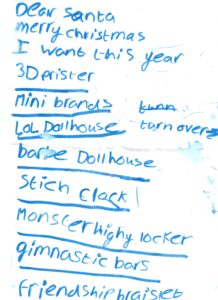 Dear santa
merry christmas
I want this year
3D prister
Mini brands
LOL Dollhouse turn over
barbe Dollhouse
Stich Clock
Monster highy locker
gimnastic bars
friendship braislet